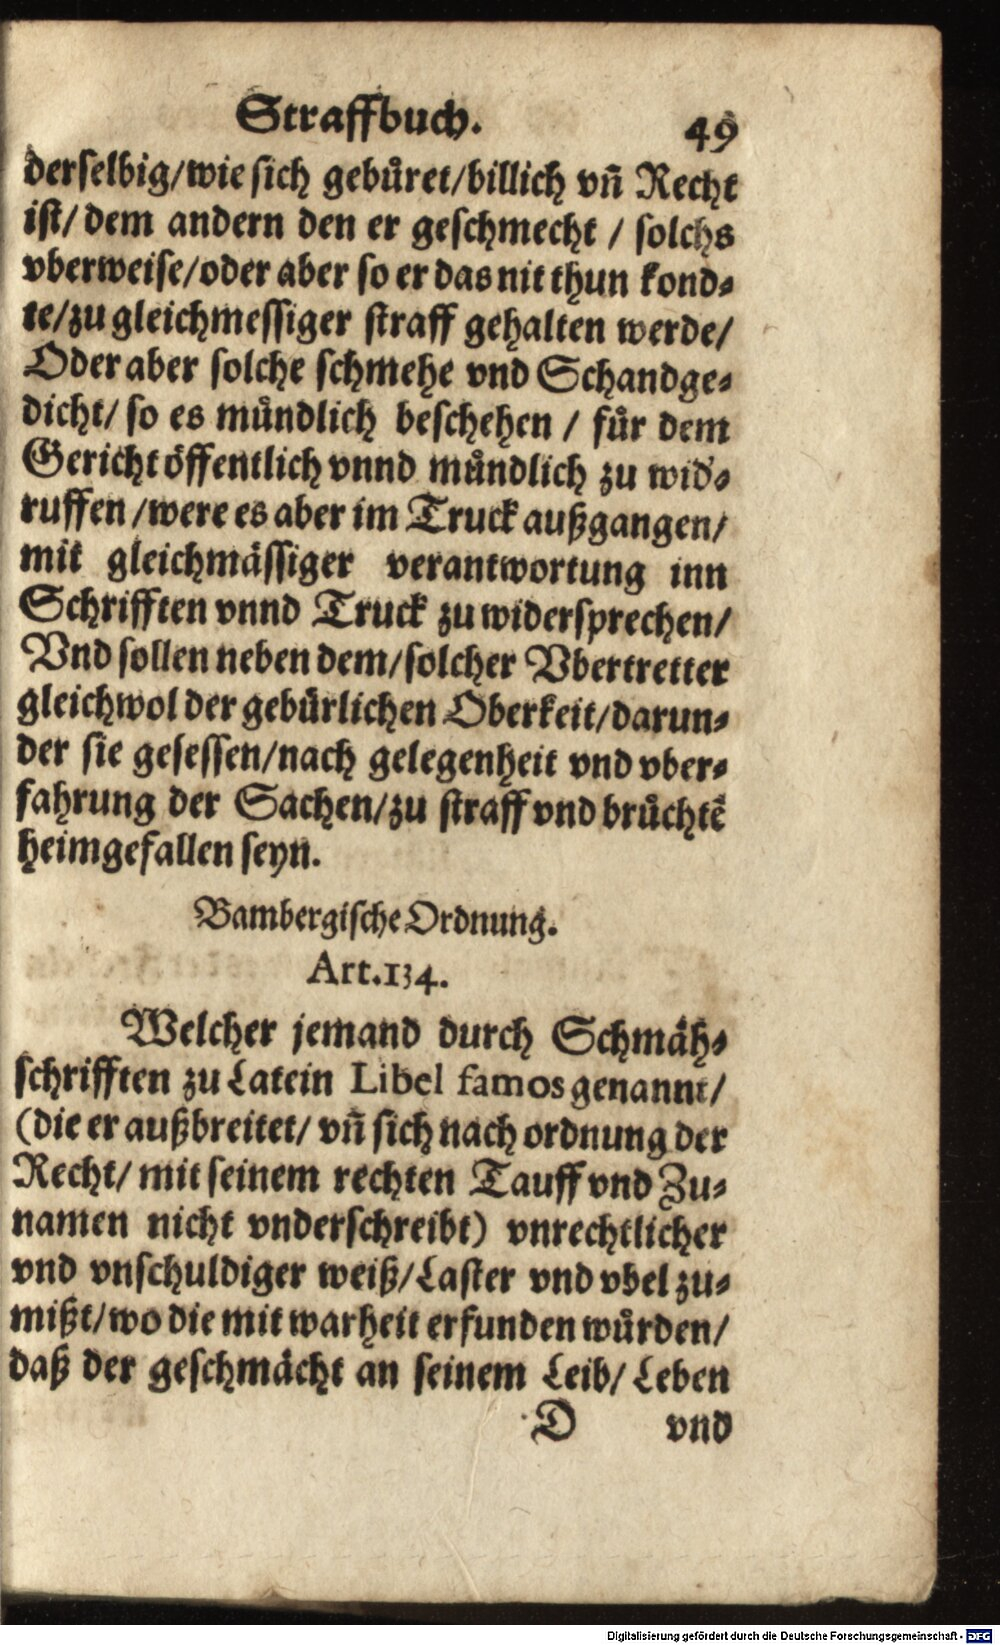 Straffbuch. 49
derselbig/wie sich gebuͤret/billich vn̄ Recht
ist/ dem andern den er geschmecht / solchs
vberweise/oder aber so er das nit thun kond⸗
te/zu gleichmessiger straff gehalten werde/
Oder aber solche schmehe vnd Schandge⸗
dicht/ so es muͤndlich beschehen / fuͤr dem
Gericht oͤffentlich vnnd muͤndlich zu wid⸗
ruffen /were es aber im Truck außgangen/
mit gleichmaͤssiger verantwortung inn
Schrifften vnnd Truck zu widersprechen/
Vnd sollen neben dem/solcher Vbertretter
gleichwol der gebuͤrlichen Oberkeit/darun⸗
der sie gesessen/nach gelegenheit vnd vber⸗
fahrung der Sachen/zu straff vnd bruͤchtē
heimgefallen seyn.
Bambergische Ordnung.
Art.134.
Welcher jemand durch Schmaͤh⸗
schrifften zu Latein Libel famos genannt/
(die er außbreitet/ vn̄ sich nach ordnung der
Recht/ mit seinem rechten Tauff vnd Zu⸗
namen nicht vnderschreibt) vnrechtlicher
vnd vnschuldiger weiß/Laster vnd vbel zu⸗
mißt/wo die mit warheit erfunden wuͤrden/
daß der geschmaͤcht an seinem Leib/ Leben
D vnd
Digitalisierung gefördert durch die Deutsche Forschungsgemeinschaft - DFG